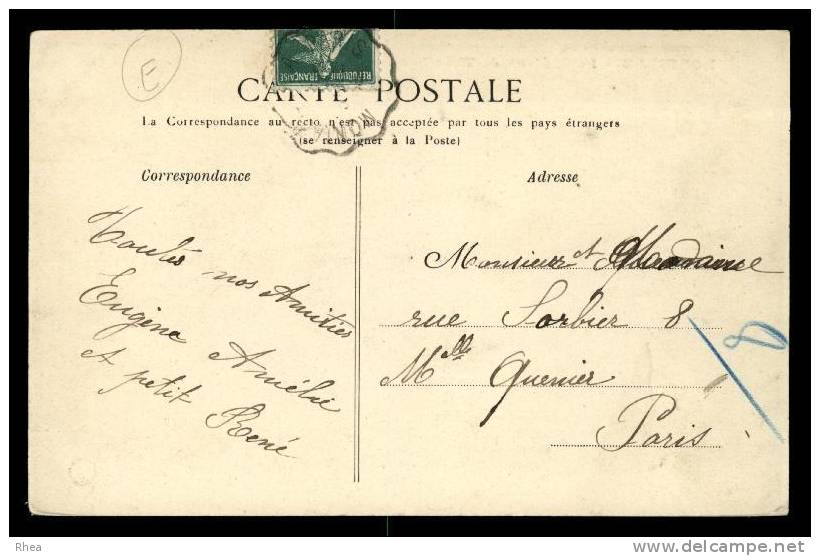 E
REPUBLIQUE FRANÇAISE
CARTE POSTALE
La Correspondance au recto n'est pas acceptée par tous les pays étrangers
(se renseigner à la Poste)
Correspondance
Toutes nos Amitiés
Eugène Amélie
et petit René
Adresse
Monsieur et Madame
rue Sorbier 8
Mlle Quenier
Paris
8
Rhea
delcampe.net